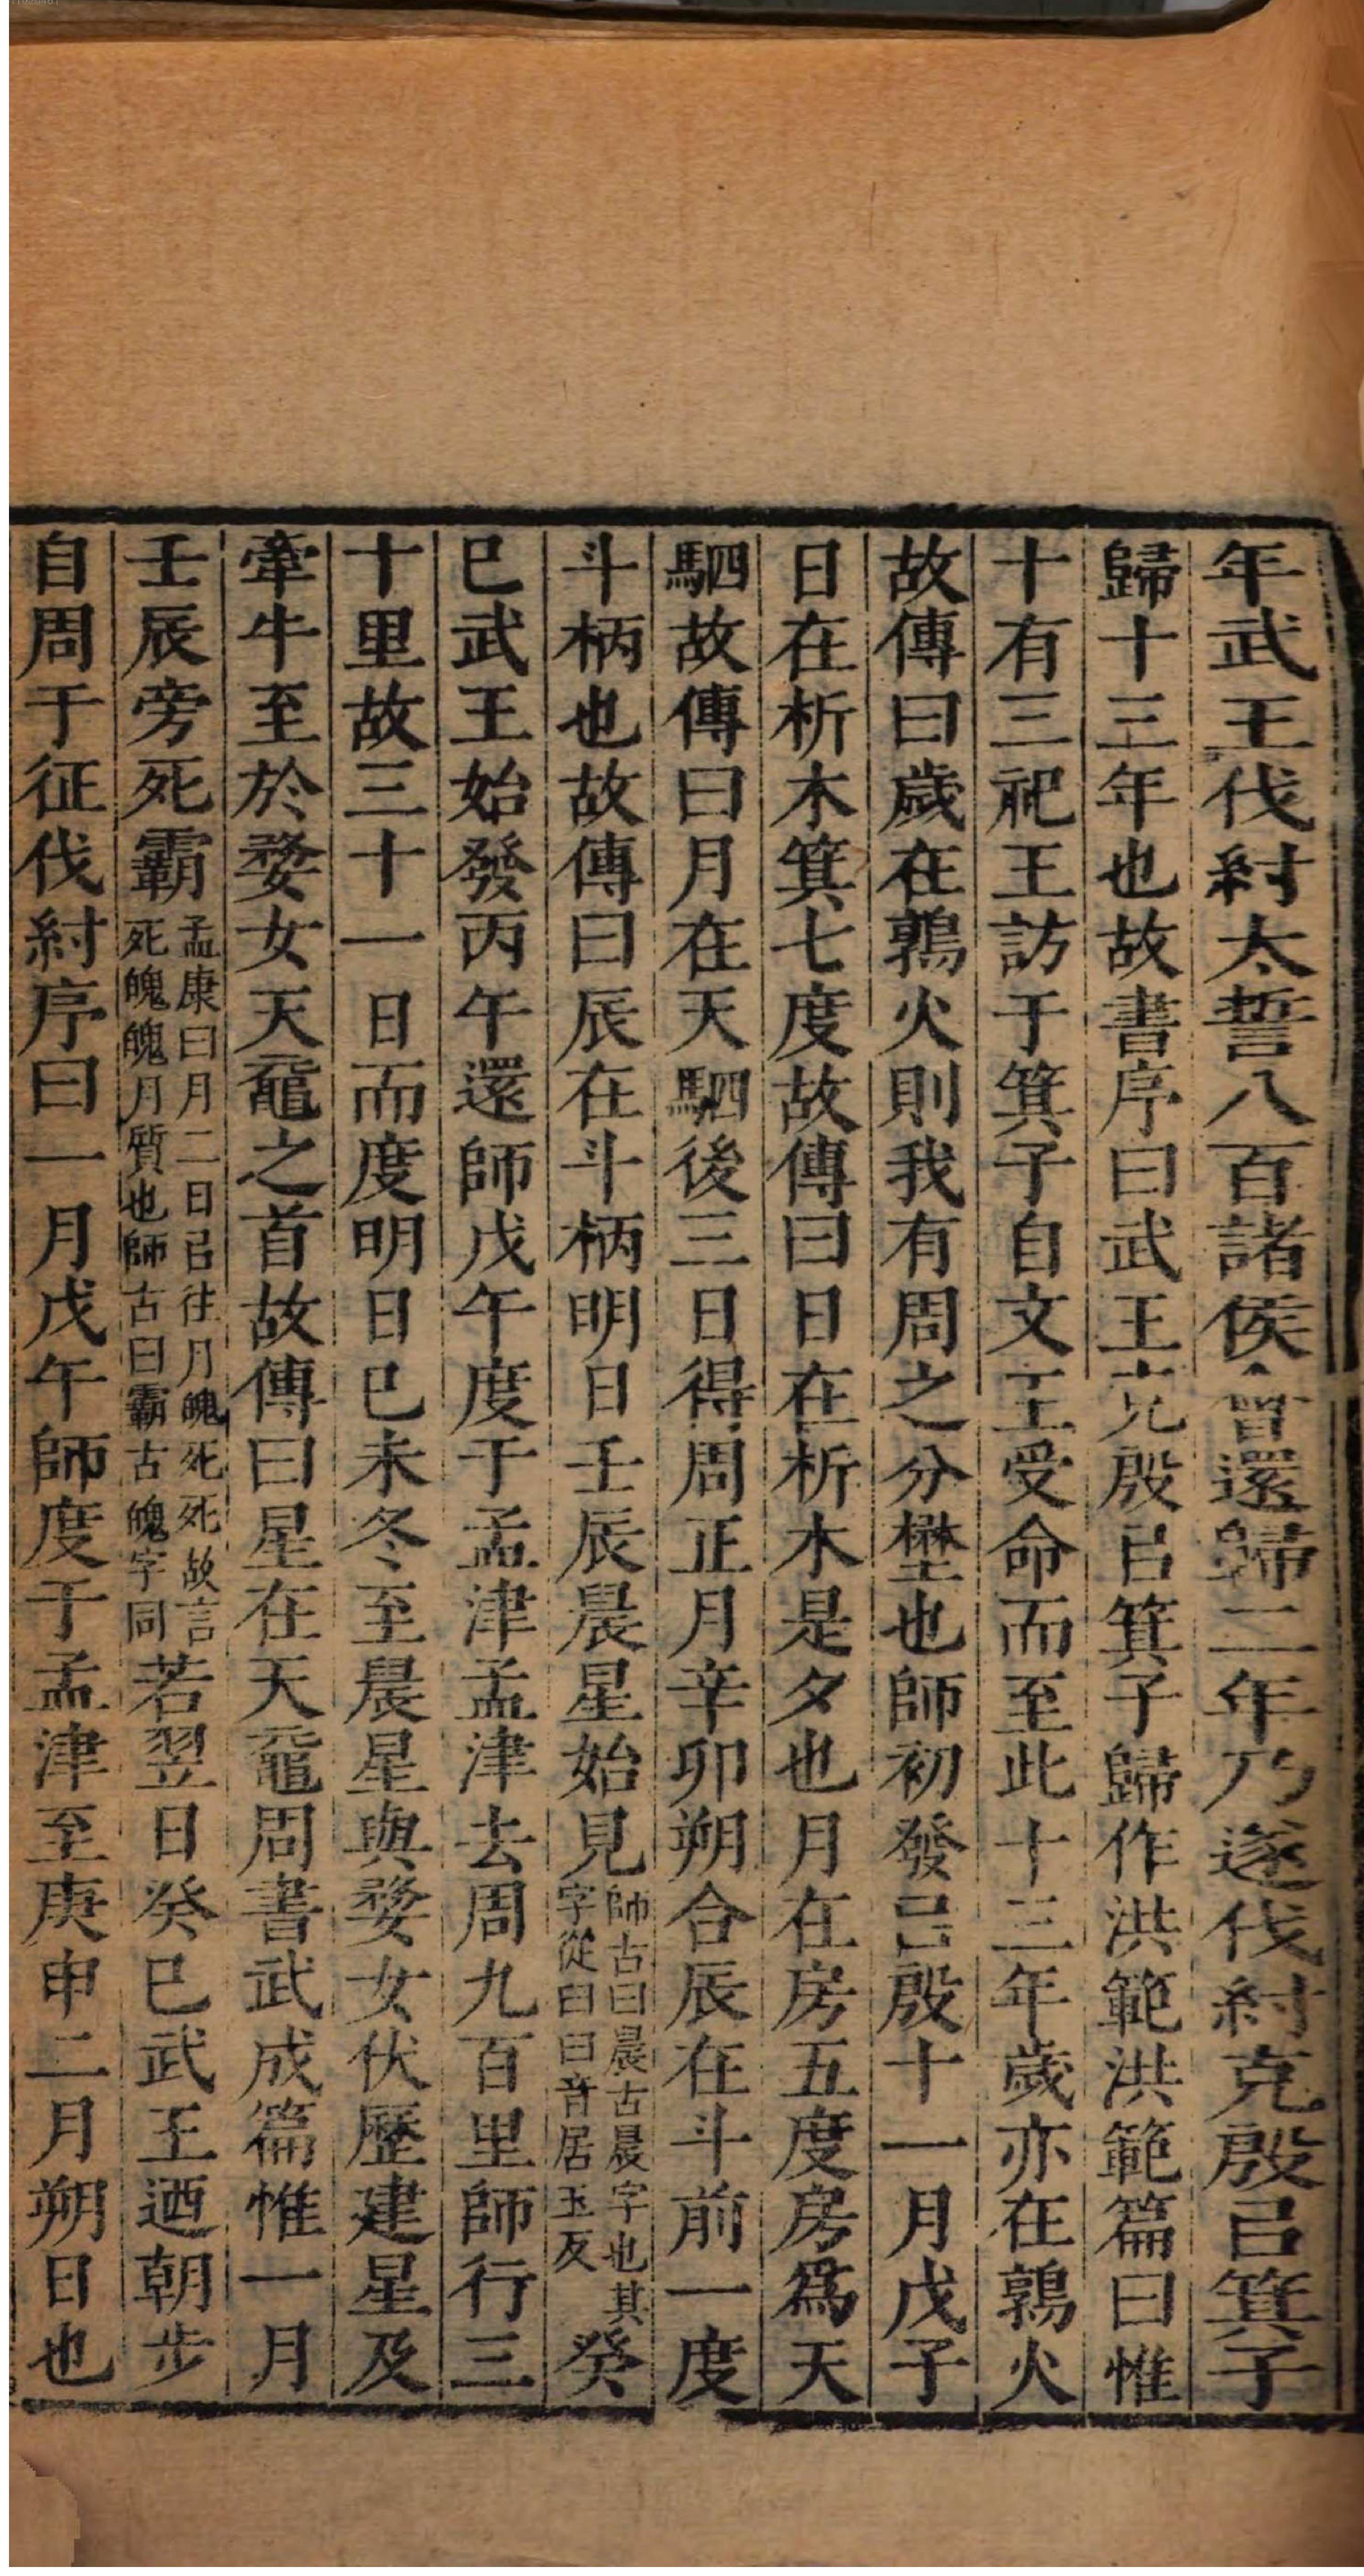 年武王伐紂太誓八百諸侯會還歸二年乃遂伐紂克殷㠯箕子
歸十三年也故書序曰武王克殷㠯箕子歸作洪範洪範篇曰惟
十有三祀王訪于箕子自文王受命而至此十三年歲亦在鶉火
故傳曰歲在鶉火則我有周之分壄也師初發㠯殷十一月戊子
日在析木箕七度故傳曰日在析木是夕也月在房五度房爲天
駟故傳曰月在天駟後三日得周正月辛卯朔合辰在斗前一度
斗柄也故傳曰辰在斗柄明日壬辰晨星始見師古曰晨古晨字也其字從臼臼音居玉反癸
巳武王始發丙午還師戊午度于孟津孟津去周九百里師行三
十里故三十一日而度明日巳未冬至晨星與婺女伏歷建星及
牽牛至於婺女天黿之首故傳曰星在天黿周書武成篇惟一月
壬辰旁死霸孟康曰月二日㠯往月魄死死故言死魄魄月質也師古曰霸古魄字同若翌日癸巳武王迺朝步
自周于征伐紂序曰一月戊午師度于孟津至庚申二月朔日也